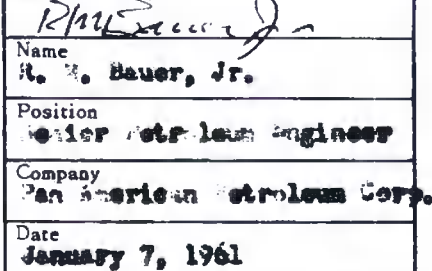 RMBauer Jr
Name
R. M. Bauer, Jr.
Position
Senior Petroleum Engineer
Company
Pan American Petroleum Corp.
Date
January 7, 1961